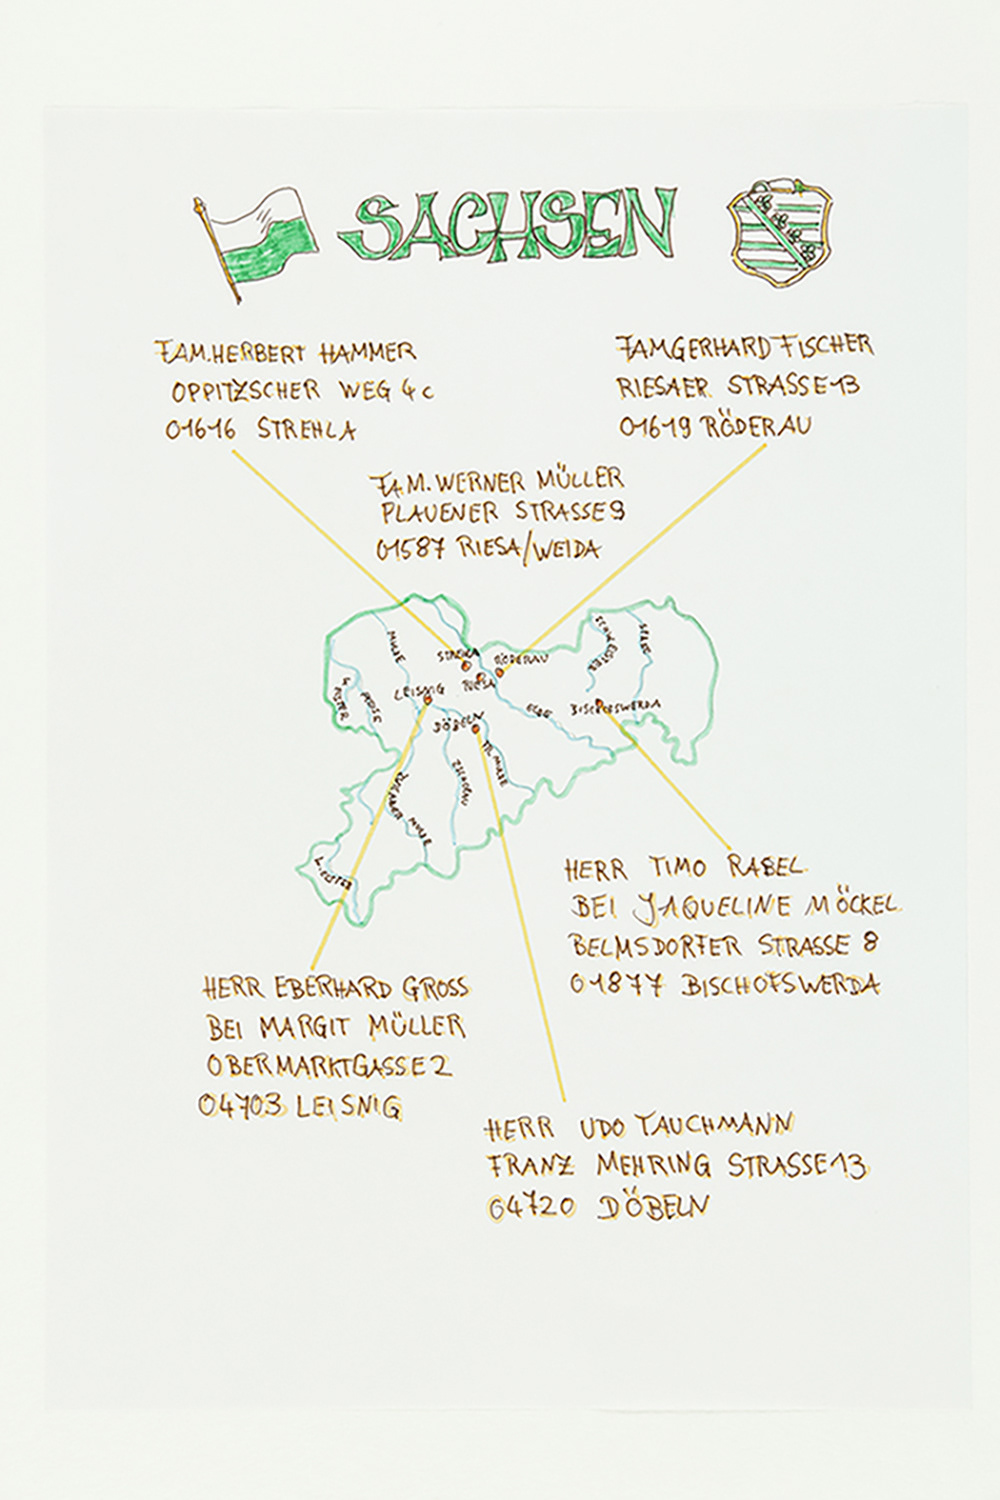 SACHSEN
FAM. HERBERT HAMMER
OPPITZSCHER WEG 4c
01616 STREHLA
FAM GERHARD FISCHER
RIESAER STRASSE 13
01619 RÖDERAU
FAM. WERNER MÜLLER
PLAUENER STRASSE 9
01587 RIESA/WEIDA
MULDE
STREHLA
RÖDERAU
RIESA
LEISNIG
DÖBELN
ELBE
BISCHOFSWERDA
SPREE
W. ELSTER
PLEISSE
ZSCHOPAU
FR. MULDE
ZWICKAUER MULDE
W. ELSTER
HERR TIMO RABEL
BEI JAQUELINE MÖCKEL
BELMSDORFER STRASSE 8
01877 BISCHOFSWERDA
HERR EBERHARD GROSS
BEI MARGIT MÜLLER
OBERMARKTGASSE 2
04703 LEISNIG
HERR UDO TAUCHMANN
FRANZ MEHRING STRASSE 13
04720 DÖBELN